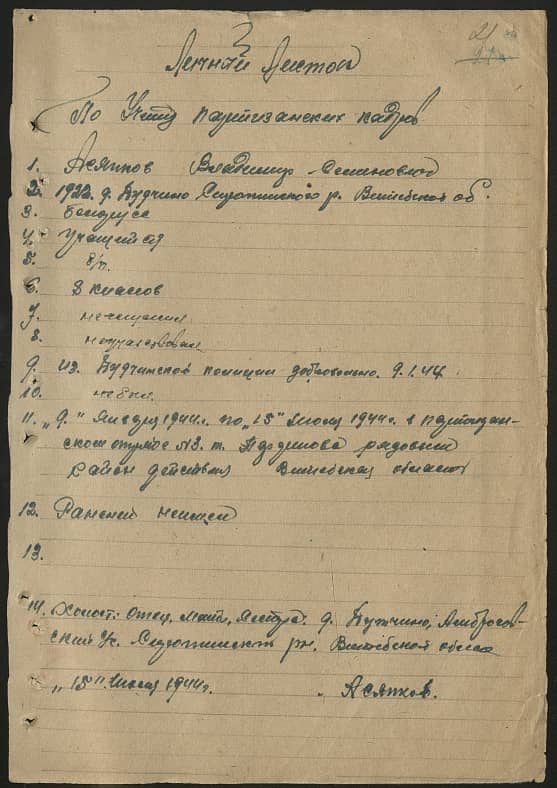 21
Личный Листок
По Учёту партизанских кадров
1. Асяпков Владимир Семинович
2. 1922. д. Будчино Сиротинского р. Витебской об.
3. Белоруса
4. Учащейся
5. б/п.
6. 8 классов
7. несещения
8. неучаствовал
9. из. Будчинской полиции добровольно. 9.1.44
10. небыл.
11. „9." Января 1944г. по „15" Июля 1944г. в партизан-
ском отряде №3. т. рядовым
район действия Витебская область
12. Ранений неимел
13.
14. Холост: отец, мать, сестра. д. Бутчино, Амбросов-
ский Сиротинский рн. Витебской област
„15" Июля 1944г. Асяпков.